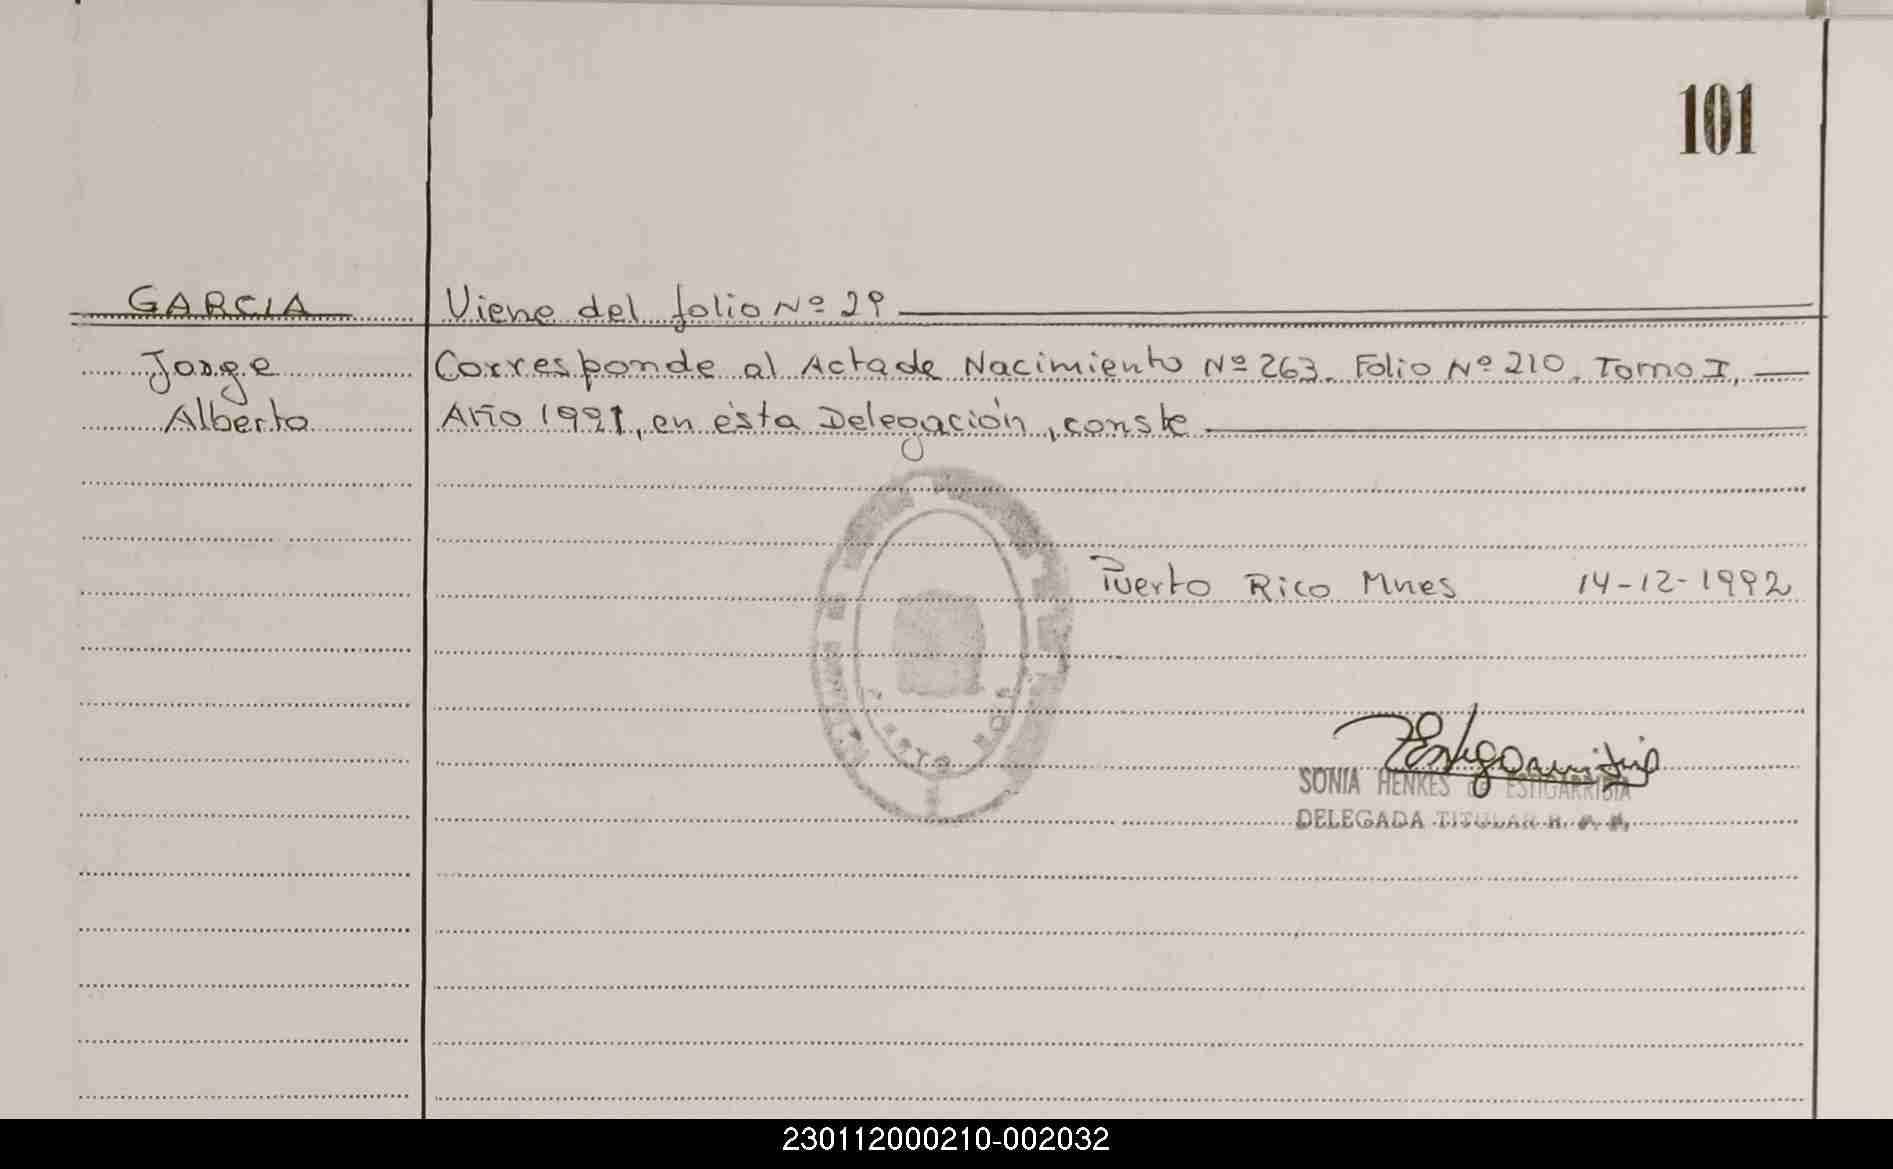 101
GARCIA Viene del folio Nº 29
Jorge Corresponde al Acta de Nacimiento Nº 263. Folio Nº 210. Tomo I,
Alberto Año 1991, en ésta Delegación, conste
Puerto Rico Mnes 14-12-1992
SONIA HENKES de ESTIGARRIBIA
DELEGADA TITULAR R. P. P.
230112000210-002032